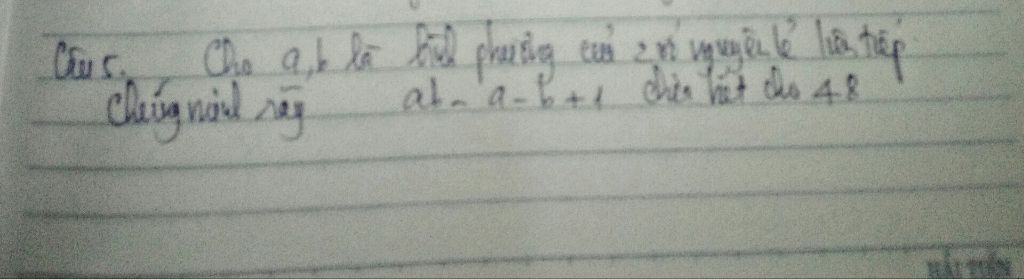 Câu 5. Cho a, b là bình phương của 2 số nguyên lẻ liên tiếp
Chứng minh rằng ab - a - b + 1 chia hết cho 48